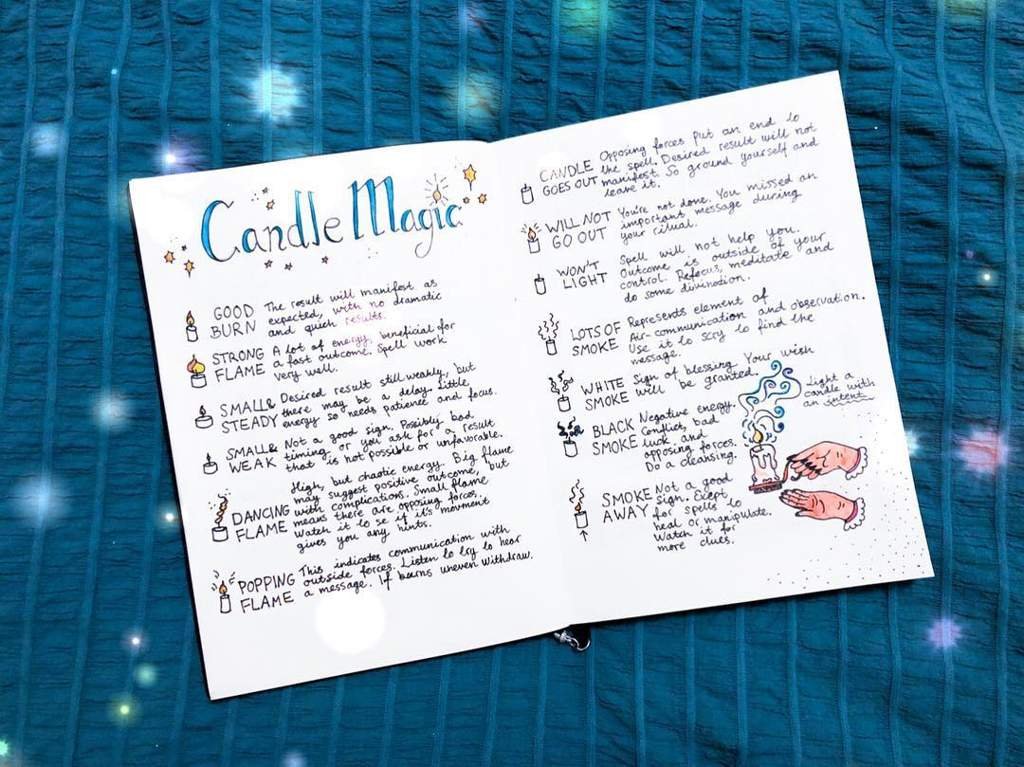 Candle Magic
GOOD BURN
The result will manifest as
expected, with no dramatic
and quick results.
STRONG FLAME
A lot of energy, beneficial for
a fast outcome. Spell work
very well.
SMALL & STEADY
Desired result still weakly, but
there may be a delay. Little
energy so needs patience and focus.
SMALL & WEAK
Not a good sign. Possibly bad
timing, or you ask for a result
that is not possible or unfavorable.
DANCING FLAME
High, but chaotic energy. Big flame
may suggest positive outcome, but
with complications. Small flame
means there are opposing forces.
Watch it to se if it's movment
gives you any hints.
POPPING FLAME
This indicates communication with
outside forces. Listen to try to hear
a message. If burns uneven withdraw.
CANDLE GOES OUT
Opposing forces put an end to
the spell. Desired result will not
manifest. So ground yourself and
leave it.
WILL NOT GO OUT
You're not done. You missed an
important message during
your ritual.
WON'T LIGHT
Spell will not help you.
Outcome is outside of your
control. Refocus, meditate and
do some divination.
LOTS OF SMOKE
Represents element of
Air-communication and observation.
Use it to scry to find the
message.
WHITE SMOKE
Sign of blessing. Your wish
will be granted.
BLACK SMOKE
Negative energy.
Conflict, bad
luck. and
opposing forces.
Do a cleansing.
SMOKE AWAY
Not a good
sign. Exept
for spells to
heal or manipulate.
Watch it for
more clues.
Light a
candle with
an intent